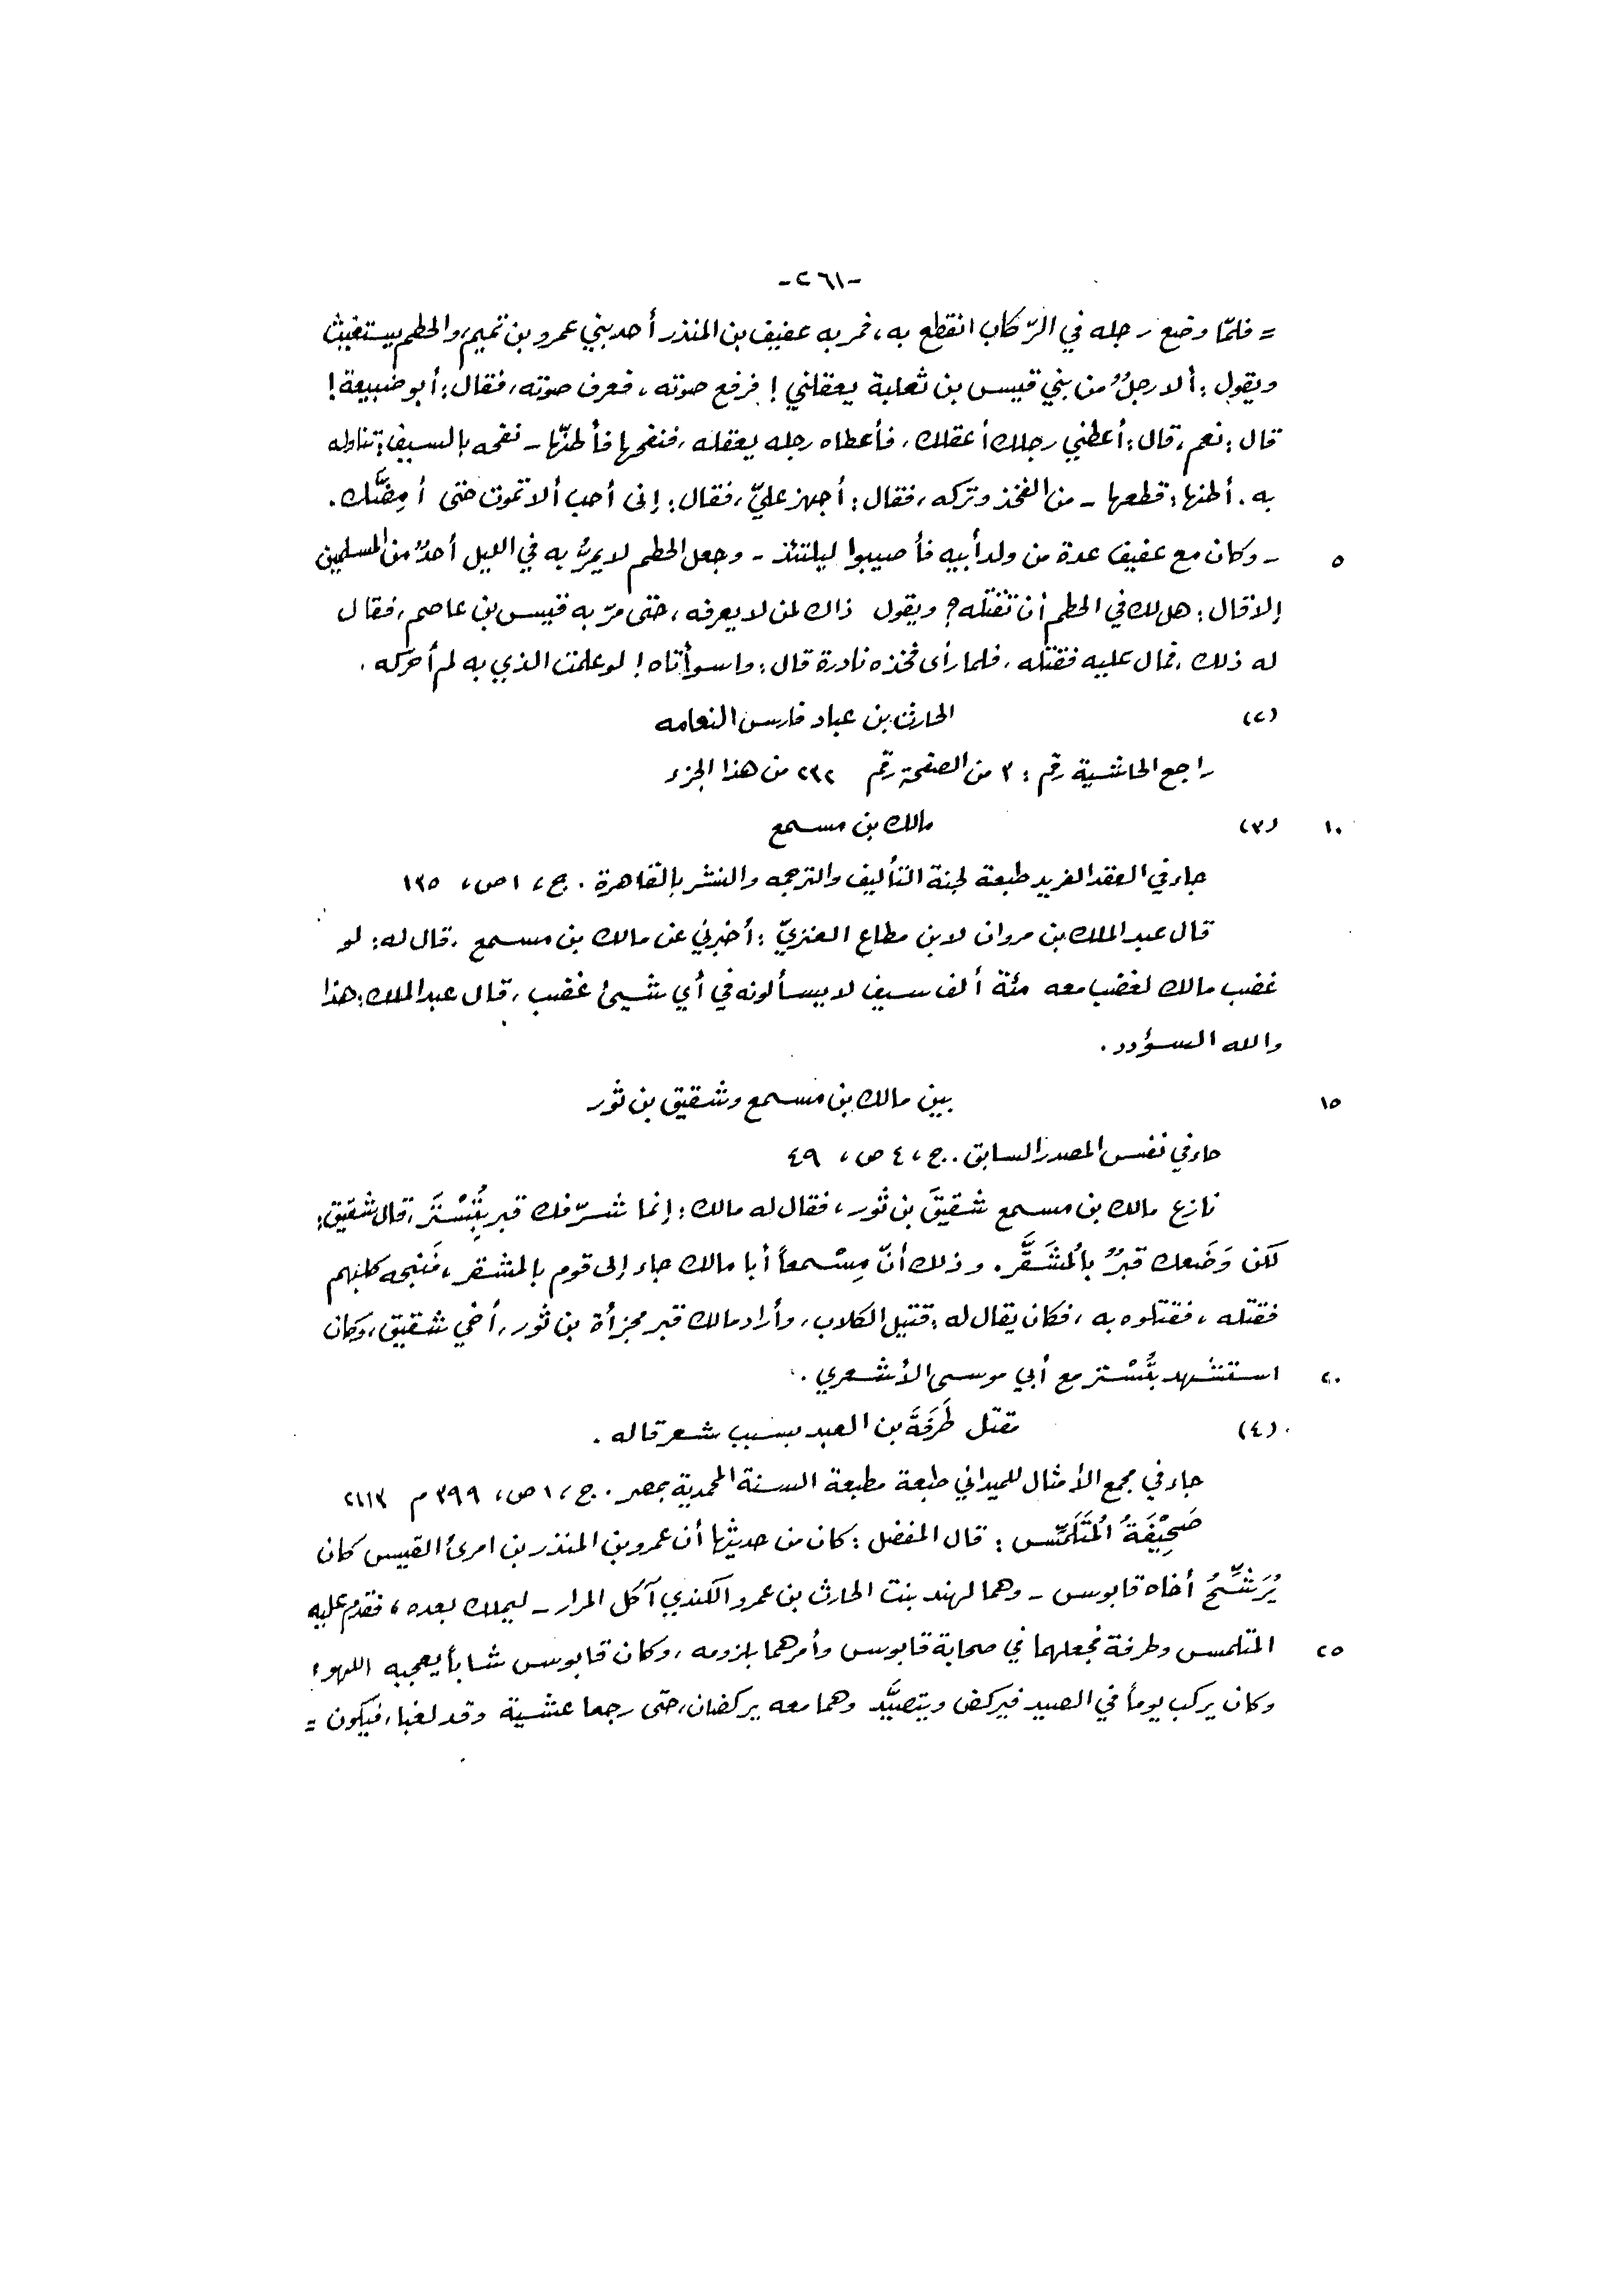 -٢٦١-
= فلمّا وضع رجله في الرّكاب انقطع به، فمر به عفيف بن المنذر أحد بني عمرو بن تميم، والحطم يستغيث
ويقول: ألا رجلٌ من بني قيس بن ثعلبة يعقلني! فرفع صوته، فعرف صوته، فقال: أبو ضبيعة!
قال: نعم، قال: أعطني رجلك أعقلك، فأعطاه رجله يعقله، فنفحها فأطنّها - نفحه بالسيف: تناوله
به. أطنها: قطعها - من الفخذ وتركه، فقال: أجهز عليّ، فقال: إني أحب ألا تموت حتى أمِضَّك.
٥ - وكان مع عفيف عدة من ولد أبيه فأصيبوا ليلتئذ - وجعل الحطم لا يمرُّ به في الليل أحدٌ من المسلمين
إلا قال: هل لك في الحطم أن تقتله؟ ويقول ذاك لمن لا يعرفه، حتى مرّ به قيس بن عاصم، فقال
له ذلك، فمال عليه فقتله، فلما رأى فخذه نادرة قال: واسوأتاه! لو علمت الذي به لم أحركه.
(٢) الحارث بن عباد فارس النعامه
راجع الحاشية رقم: ٣ من الصفحة رقم ٢٣٢ من هذا الجزء
١٠ (٣) مالك بن مسمع
جاء في العقد الفريد طبعة لجنة التأليف والترجمه والنشر بالقاهرة. ج، ١ ص، ١٣٥
قال عبد الملك بن مروان لابن مطاع العنزيّ: أخبرني عن مالك بن مسمع، قال له: لو
غضب مالك لغضب معه مئة ألف سيف لا يسألونه في أي شيئ غضب، قال عبد الملك: هذا
والله السؤدد.
١٥ بين مالك بن مسمع وشقيق بن ثور
جاء في نفس المصدر السابق.. ج، ٤ ص، ٤٩
نازع مالك بن مسمع شقيقَ بن ثور، فقال له مالك: إنما شرّفك قبر بِتُسْتَر، قال شقيق:
لكن وَضَعك قبرٌ بالمُشَقَّر. وذلك أنّ مِسْمعاً أبا مالك جاء إلى قوم بالمشقر، فَنبحه كلبهم
فقتله، فقتلوه به، فكان يقال له: قتيل الكلاب، وأراد مالك قبر مجزأة بن ثور، أخي شقيق، وكان
٢٠ استشهد بتُسْتر مع أبي موسى الأشعري.
(٤) مقتل طَرَفَةَ بن العبد بسبب شعر قاله.
جاء في مجمع الأمثال للميداني طبعة مطبعة السنة المحمدية بمصر. ج، ١ ص، ٣٩٩ م ٢١١٣
صَحِيْفَةُ المُتَلَمِّس: قال المفضل: كان من حديثها أن عمرو بن المنذر بن امرئ القيس كان
يُرَشِّحُ أخاه قابوس - وهما لهند بنت الحارث بن عمرو الكندي آكل المرار - ليملك بعده، فقدم عليه
٢٥ المتلمس وطرفة فجعلهما في صحابة قابوس وأمرهما بلزومه، وكان قابوس شاباً يعجبه اللهو،
وكان يركب يوماً في الصيد فيركض ويتصيَّد وهما معه يركضان، حتى رجعا عشية وقد لغبا، فيكون =